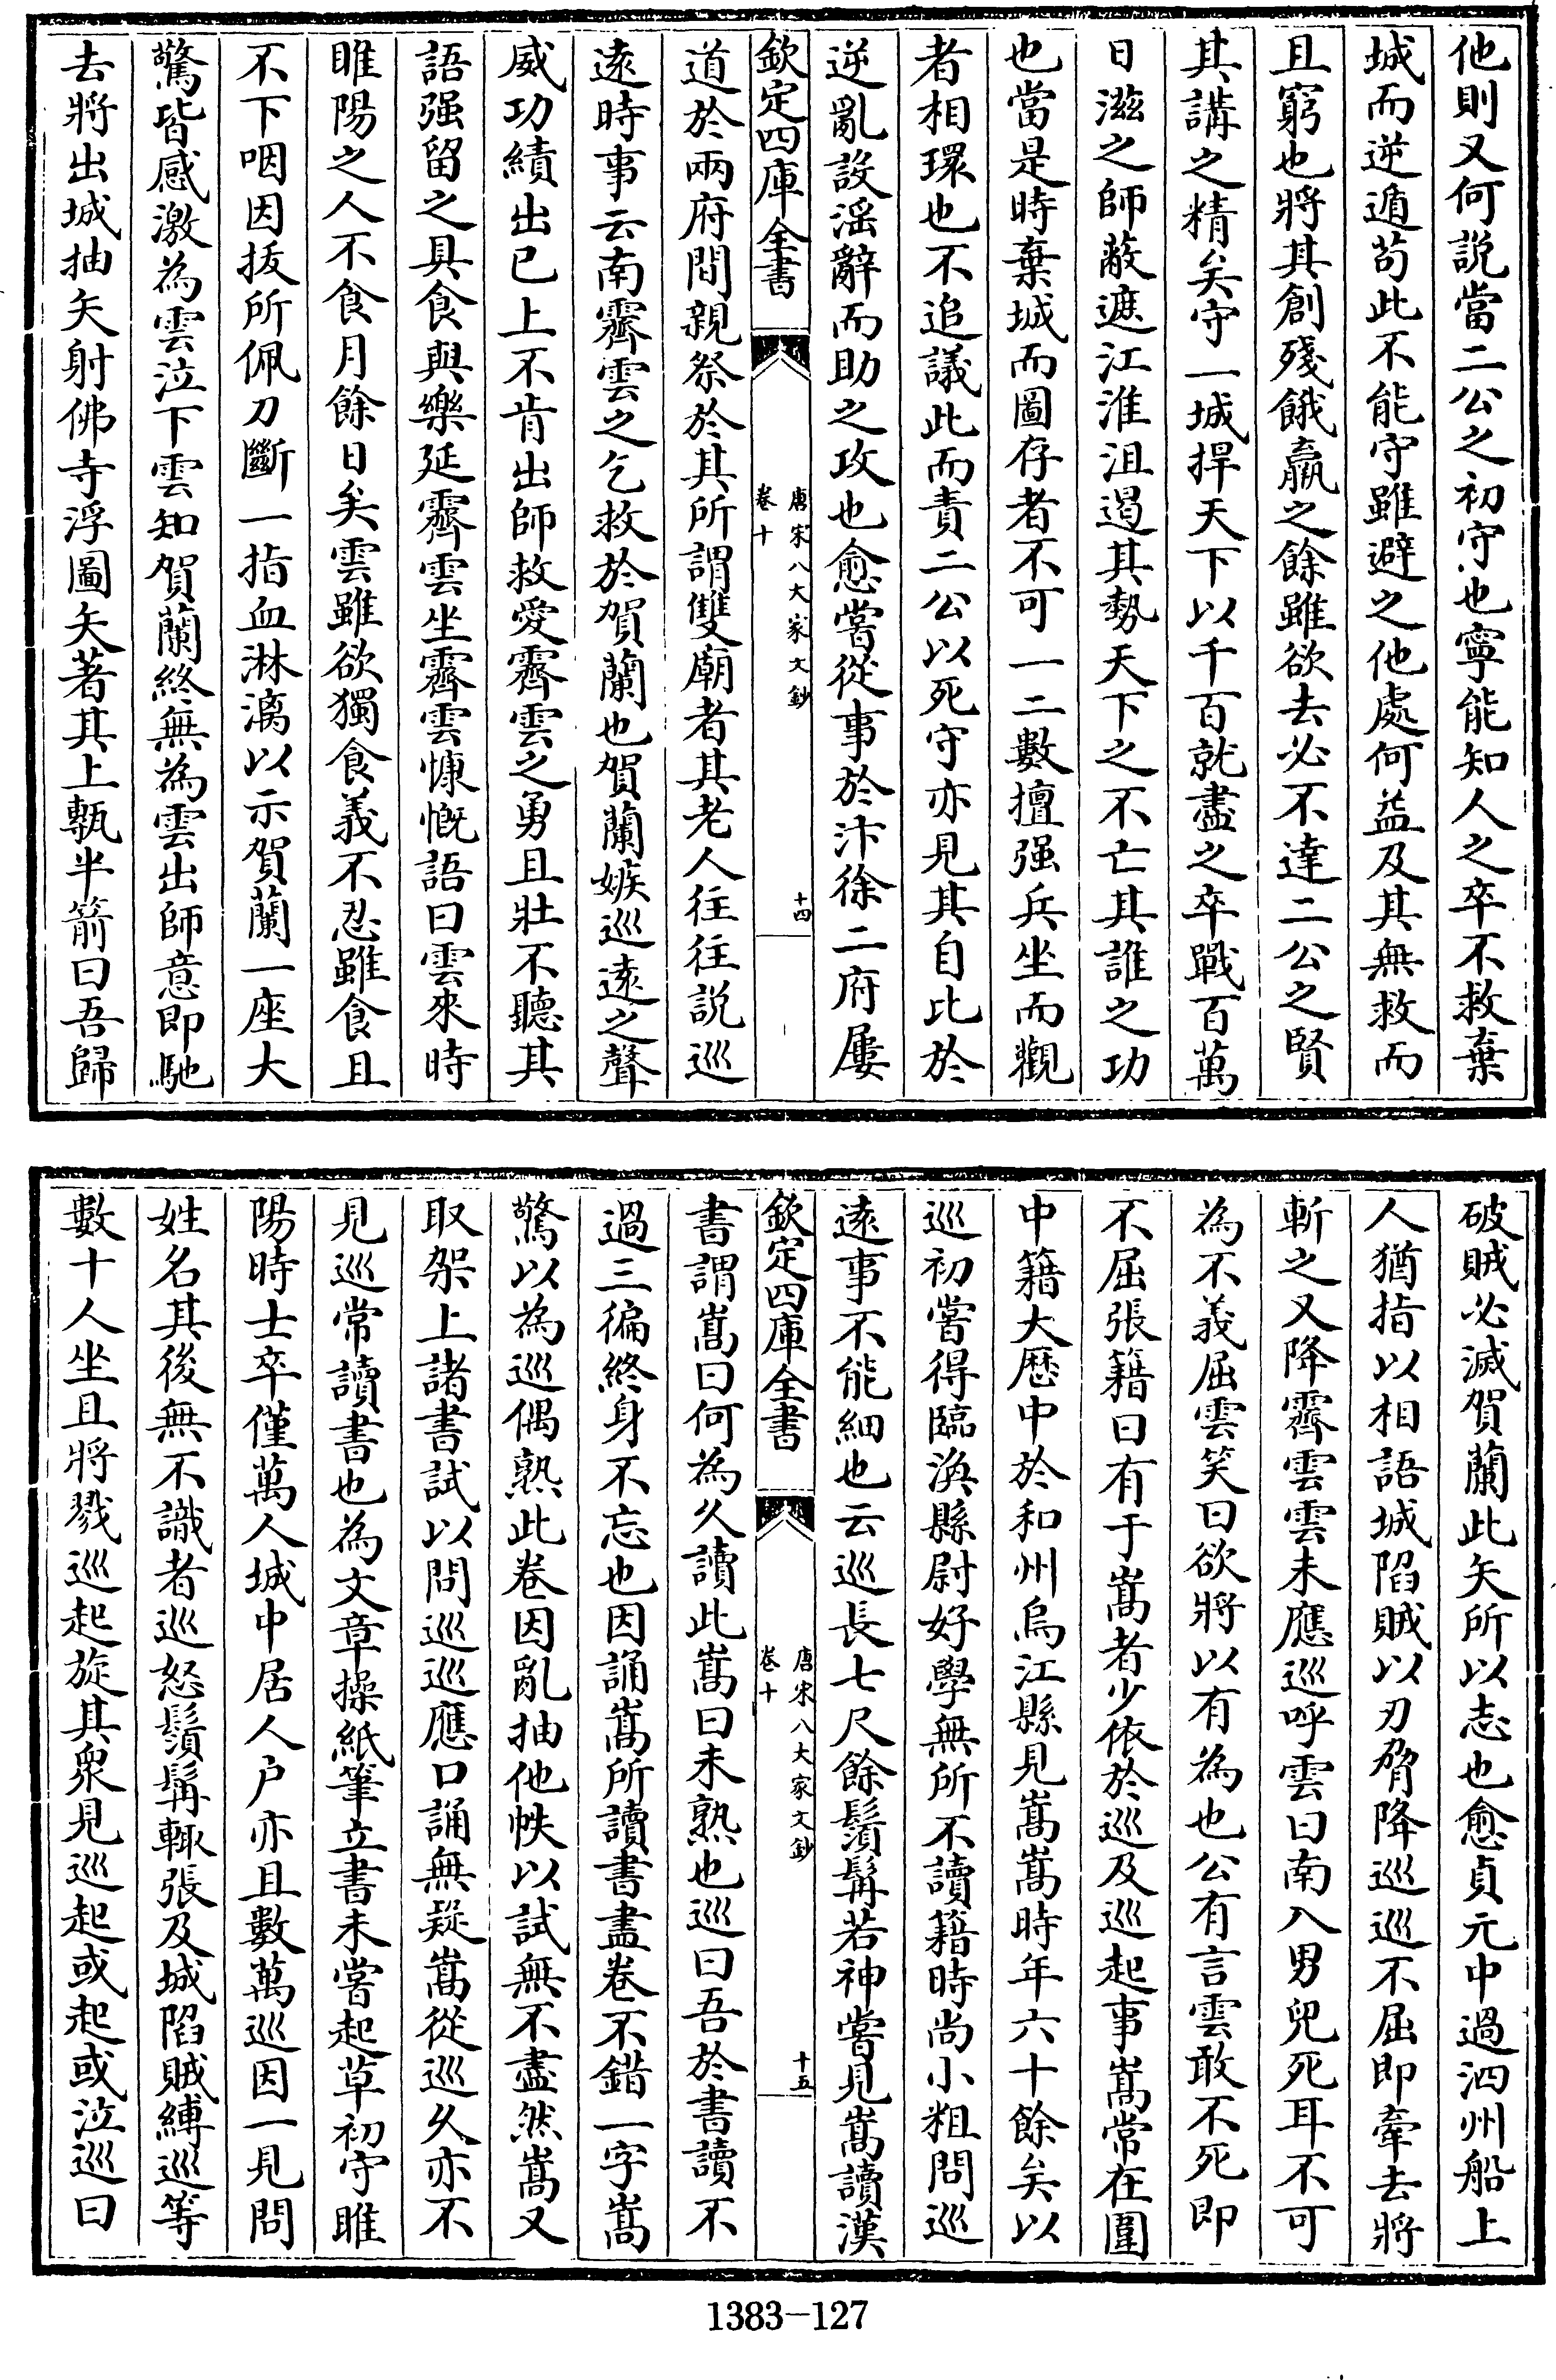 他則又何説當二公之初守也寧能知人之卒不救棄
城而逆遁苟此不能守雖避之他處何益及其無救而
且窮也將其創殘餓羸之餘雖欲去必不達二公之賢
其講之精矣守一城捍天下以千百就盡之卒戰百萬
日滋之師蔽遮江淮沮遏其勢天下之不亡其誰之功
也當是時棄城而圖存者不可一二數擅强兵坐而觀
者相環也不追議此而責二公以死守亦見其自比於
逆亂設淫辭而助之攻也愈嘗從事於汴徐二府屢
欽定四庫全書
唐宋八大家文鈔
卷十
十四
道於兩府間親祭於其所謂雙廟者其老人往往説巡
遠時事云南霽雲之乞救於賀蘭也賀蘭嫉巡遠之聲
威功績出已上不肯出師救愛霽雲之勇且壯不聽其
語强留之具食與樂延霽雲坐霽雲慷慨語曰雲來時
睢陽之人不食月餘日矣雲雖欲獨食義不忍雖食且
不下咽因拔所佩刀斷一指血淋漓以示賀蘭一座大
驚皆感激為雲泣下雲知賀蘭終無為雲出師意即馳
去將出城抽矢射佛寺浮圖矢著其上甎半箭曰吾歸
破賊必滅賀蘭此矢所以志也愈貞元中過泗州船上
人猶指以相語城陷賊以刃脅降巡巡不屈即牽去將
斬之又降霽雲雲未應巡呼雲曰南八男兒死耳不可
為不義屈雲笑曰欲將以有為也公有言雲敢不死即
不屈張籍曰有于嵩者少依於巡及巡起事嵩常在圍
中籍大歴中於和州烏江縣見嵩嵩時年六十餘矣以
巡初嘗得臨渙縣尉好學無所不讀籍時尚小粗問巡
遠事不能細也云巡長七尺餘鬚髯若神嘗見嵩讀漢
欽定四庫全書
唐宋八大家文鈔
卷十
十五
書謂嵩曰何為久讀此嵩曰未熟也巡曰吾於書讀不
過三徧終身不忘也因誦嵩所讀書盡卷不錯一字嵩
驚以為巡偶熟此卷因亂抽他帙以試無不盡然嵩又
取架上諸書試以問巡巡應口誦無疑嵩從巡久亦不
見巡常讀書也為文章操紙筆立書未嘗起草初守睢
陽時士卒僅萬人城中居人户亦且數萬巡因一見問
姓名其後無不識者巡怒鬚髯輒張及城陷賊縛巡等
數十人坐且將戮巡起旋其衆見巡起或起或泣巡曰
1383-127